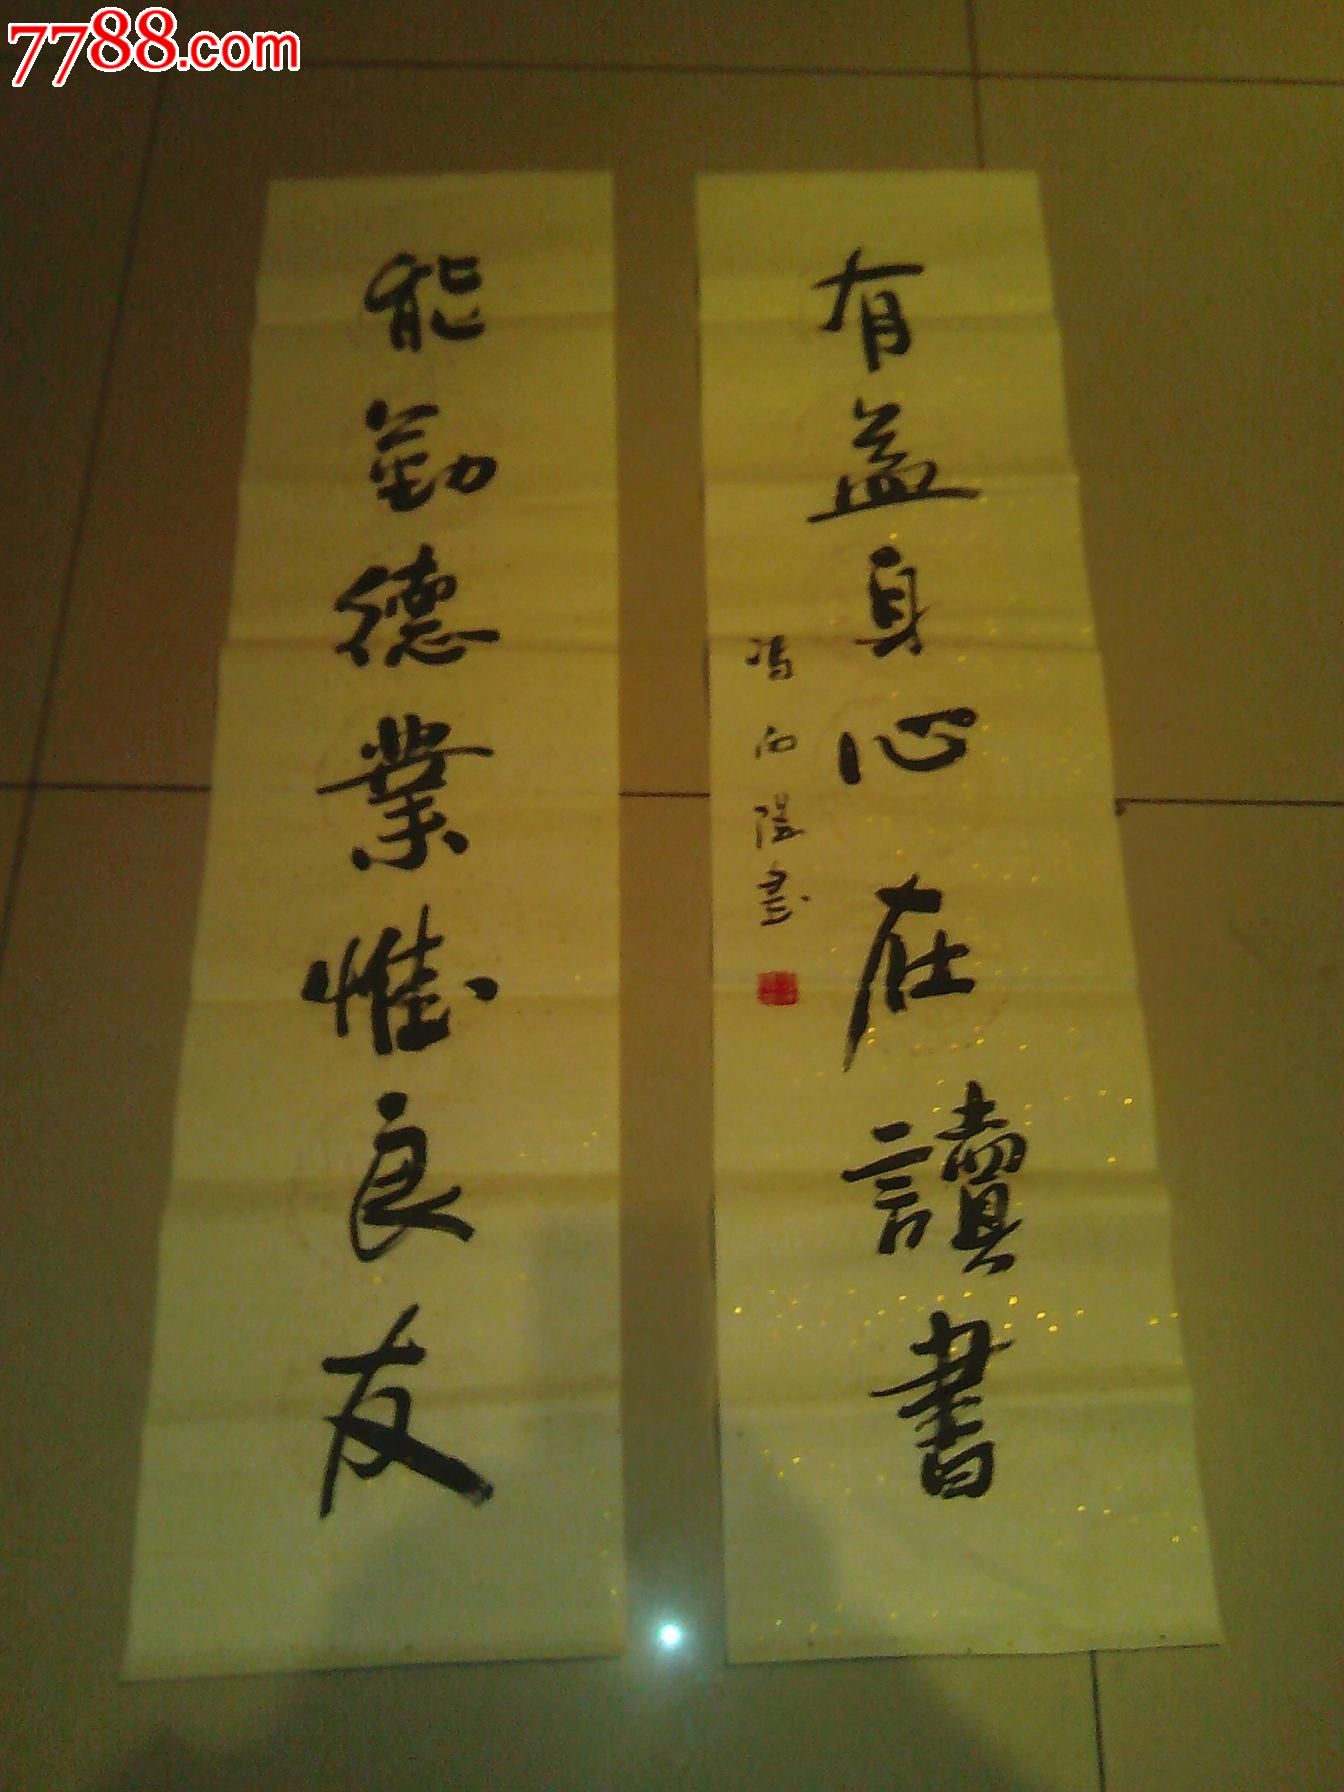 7788.com
有益身心在讀書
冯向陽書
能勤德業惟良友